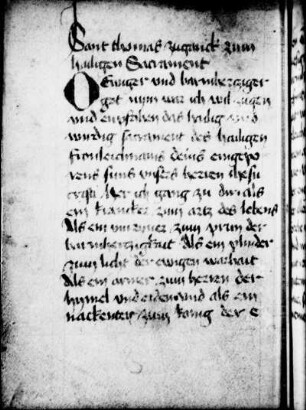 Sant thomas zuganck zum
hailigen Sacrament
O Ewiger und barmhercziger
got nym war ich wil zugen
und empfahen das heilig und
wirdig sacrament des hailigen
fronleichnams deins eingepo
rens suns unsers herren ihesu
cristi Her ich gang zu dir als
ein krancker zum artz des lebens
Als ein unreiner zum prun der
barmherczigkait Als ein plinder
zum licht der ewigen warhait
Als ein armer zum herren der
hymel und erden und als ein
nackenter zum konig der e